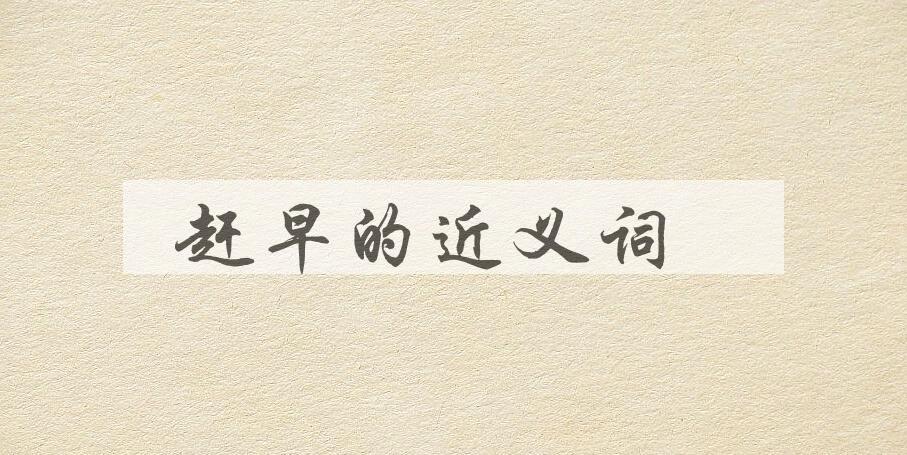 赶早的近义词